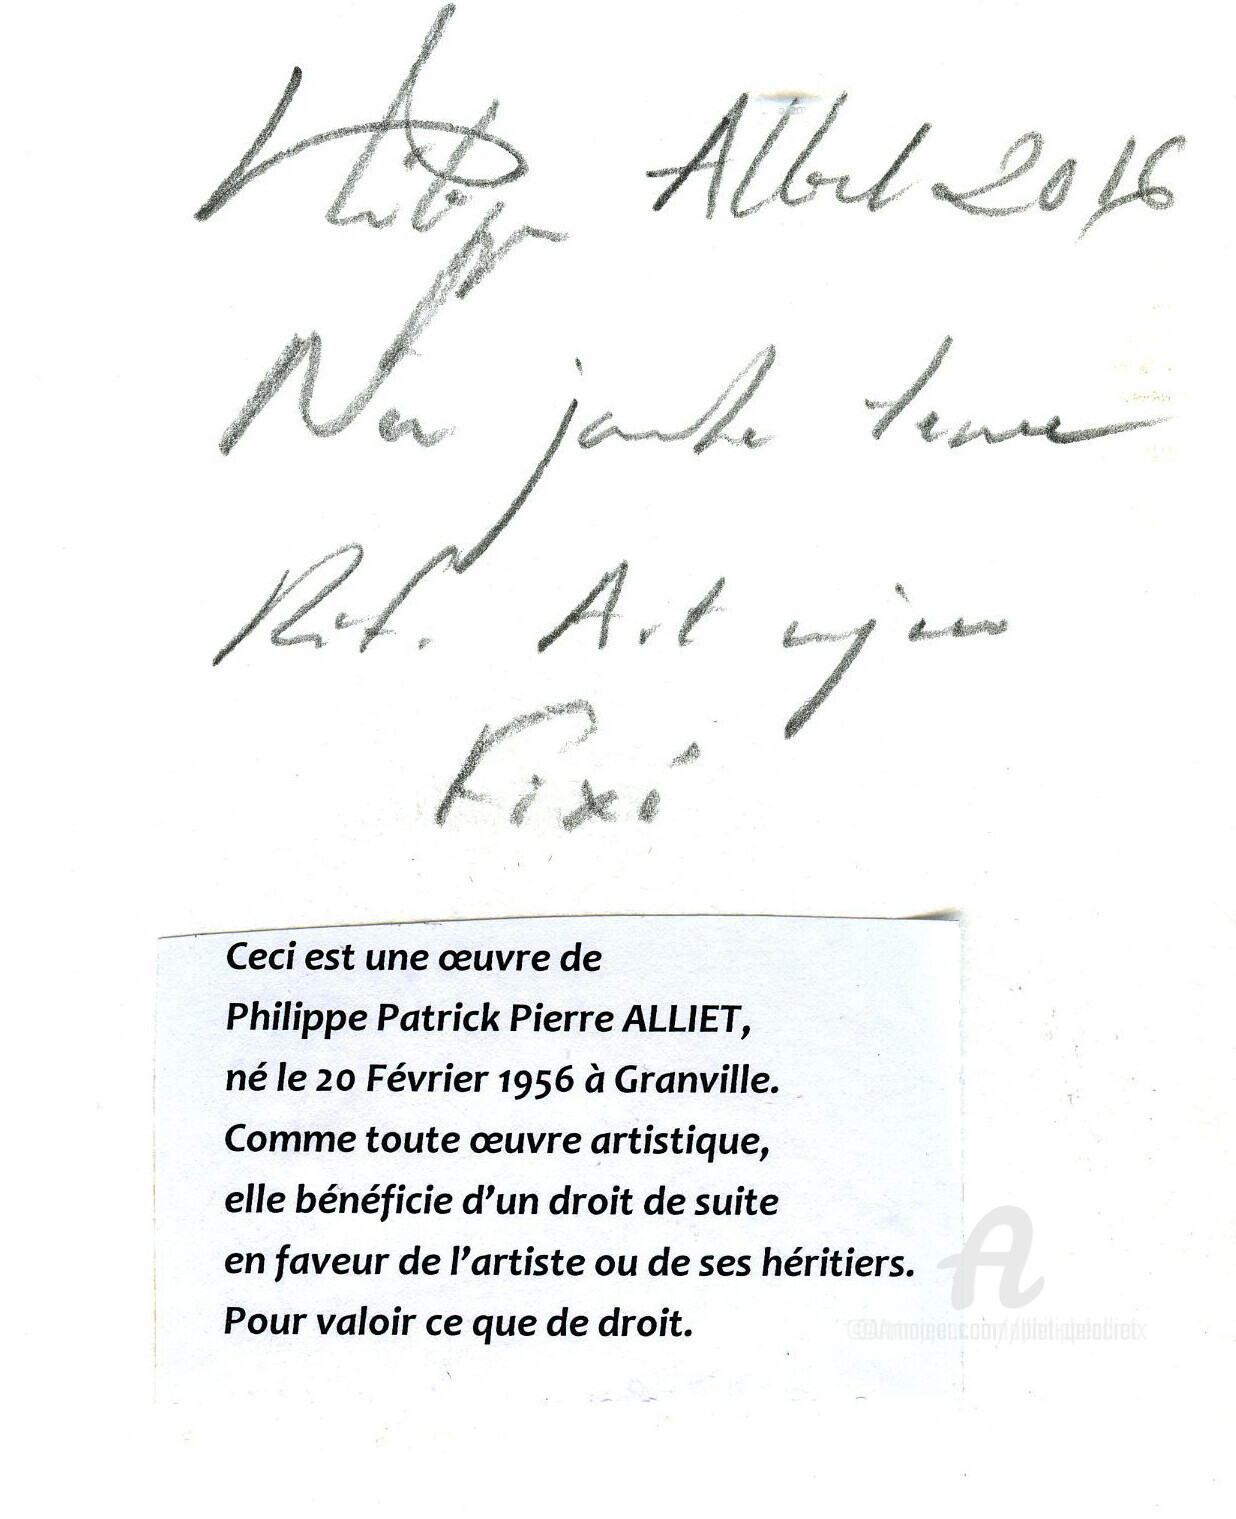 Philippe Alliet 2016
Réf. Art
Fixé
Ceci est une œuvre de
Philippe Patrick Pierre ALLIET,
né le 20 Février 1956 à Granville.
Comme toute œuvre artistique,
elle bénéficie d’un droit de suite
en faveur de l’artiste ou de ses héritiers.
Pour valoir ce que de droit.